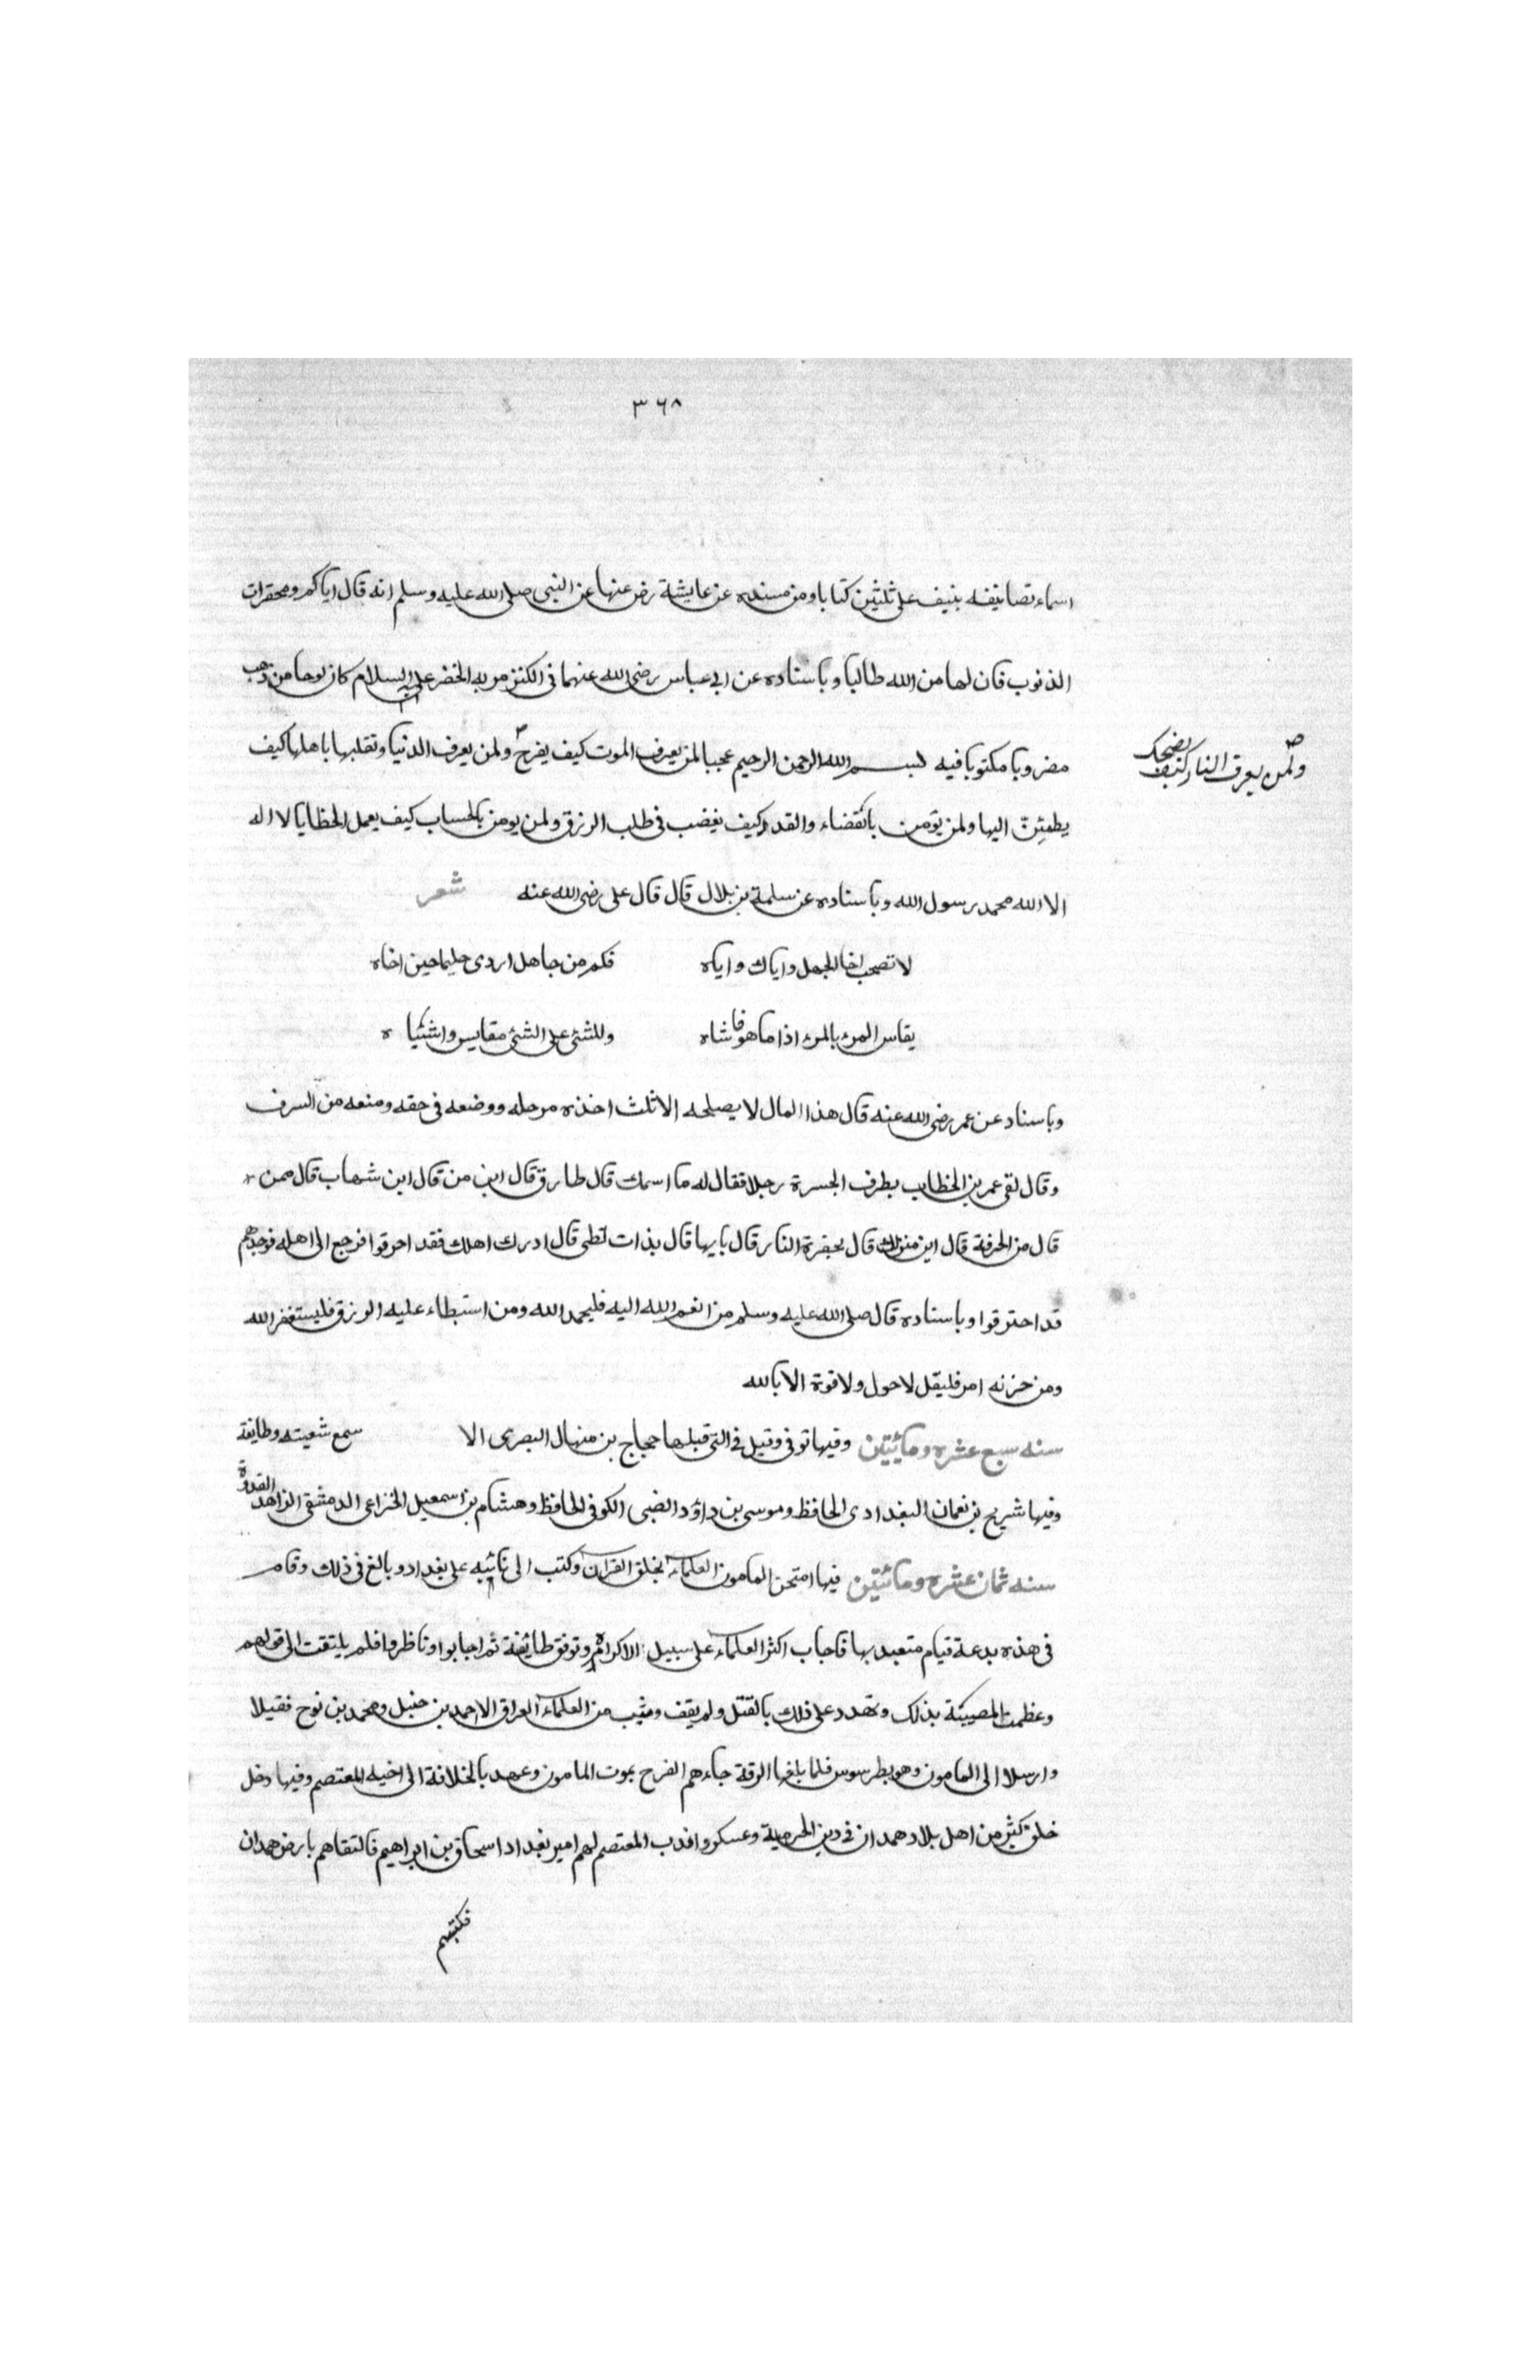 ٣٦٨
اسماء تصانيفه ينيف على ثلثين كتابا ومن مسنده عن عايشة رض عنها عن النبى صلى الله عليه وسلم انه قال اياكم ومحقرات
الذنوب فان لها من الله طالبا وباسناده عن ابي عباس رضى الله عنهما فى الكنز مر به الخضر عليه السلام كان لوحا من ذهب
مضروبا مكتوبا فيه بسم الله الرحمن الرحيم عجبا لمن يعرف الموت كيف يفرح ولمن يعرف الدنيا وتقلبها باهلها كيف
ولمن يعرف النار كيف يضحك
يطمئن اليها ولمن يؤمن بالقضاء والقدر كيف يغضب فى طلب الرزق ولمن يومن بالحساب كيف يعمل الخطايا لا اله
الا الله محمد رسول الله وباسناده عن سلمة بن بلال قال قال على رضى الله عنه شعر
لا تصحب اخا الجهل واياك واياه فكم من جاهل اردى حليما حين اخاه
يقاس المرء بالمرء اذا ما هو فاشاه وللشئ على الشئ مقاييس واشياه
وباسناد عن عمر رضى الله عنه قال هذا المال لا يصلحه الا ثلث اخذه من حله ووضعه فى حقه ومنعه من السرف
وقال لقى عمر بن الخطاب بطرف الجسرة رجلا فقال له ما اسمك قال طارق قال ابن من قال ابن شهاب قال ممن
قال من الحرقة قال اين منزلك قال بحقرة النار قال بايها قال بذات لظى قال ادرك اهلك فقد احرقوا فرجع الى اهله فوجدهم
قد احترقوا وباسناده قال صلى الله عليه وسلم من انعم الله اليه فليحمد الله ومن استبطاء عليه الرزق فليستغفر الله
ومن حزنه امر فليقل لا حول ولا قوة الا بالله
سنه سبع عشره ومائيتين وفيها توفى وقيل فى التى قبلها حجاج بن منهال البصرى الا سمع شعيته وطايفة
وفيها شريح بن نعمان البغدادى الحافظ وموسى بن داؤد الضبى الكوفى الحافظ وهشام بن اسمعيل الخزاعى الدمشقى الزاهد القدوة
سنه ثمان عشره ومائتين فيها امتحن المامون العلماء بخلق القرآن وكتب الى نائبه على بغداد وبالغ فى ذلك وقام
فى هذه بدعة قيام متعبد بها فاجاب اكثر العلماء على سبيل الاكراه وتوقف طائفة ثم اجابوا وناظروا فلم يلتفت الى قولهم
وعظمت المصيبة بذلك وتهدد على ذلك بالقتل ولم يقف من العلماء العراق الا احمد بن حنبل ومحمد بن نوح فقيلا
وارسلا الى المامون وهو بطرسوس فلما بلغها الرقة جاءهم الفرح بموت المامون وعهد بالخلافة الى اخيه المعتصم وفيها دخل
خلق كثير من اهل بلاد همدان فى دين الخرمية وعسكروا فدب المعتصم لهم امير بغداد اسحاق بن ابراهيم فالتقاهم بارض همدان